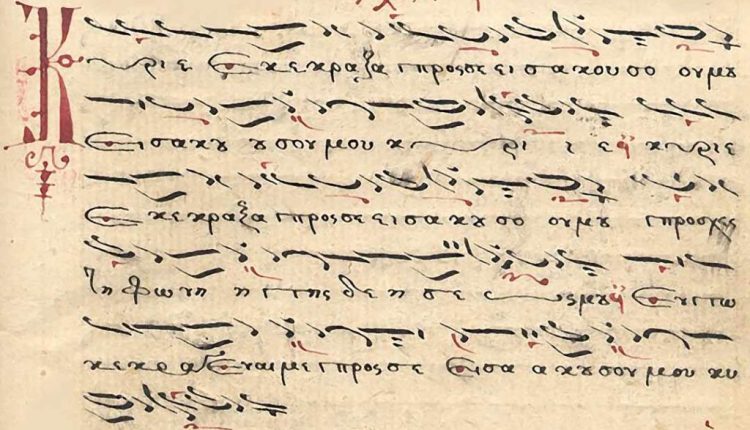 Κυριε Εκεκραξα προς σε εισακουσο ουμȣ
Εισακȣ ȣσουμου κυρι ι ε κυριε
Εκεκραξα προς σε εισακȣσο ουμȣ προσχες
τη φωνη η της δεησε ωςμȣ Εντω
κεκραγεναιμε προς σε Εισα ακȣσουμου κυ